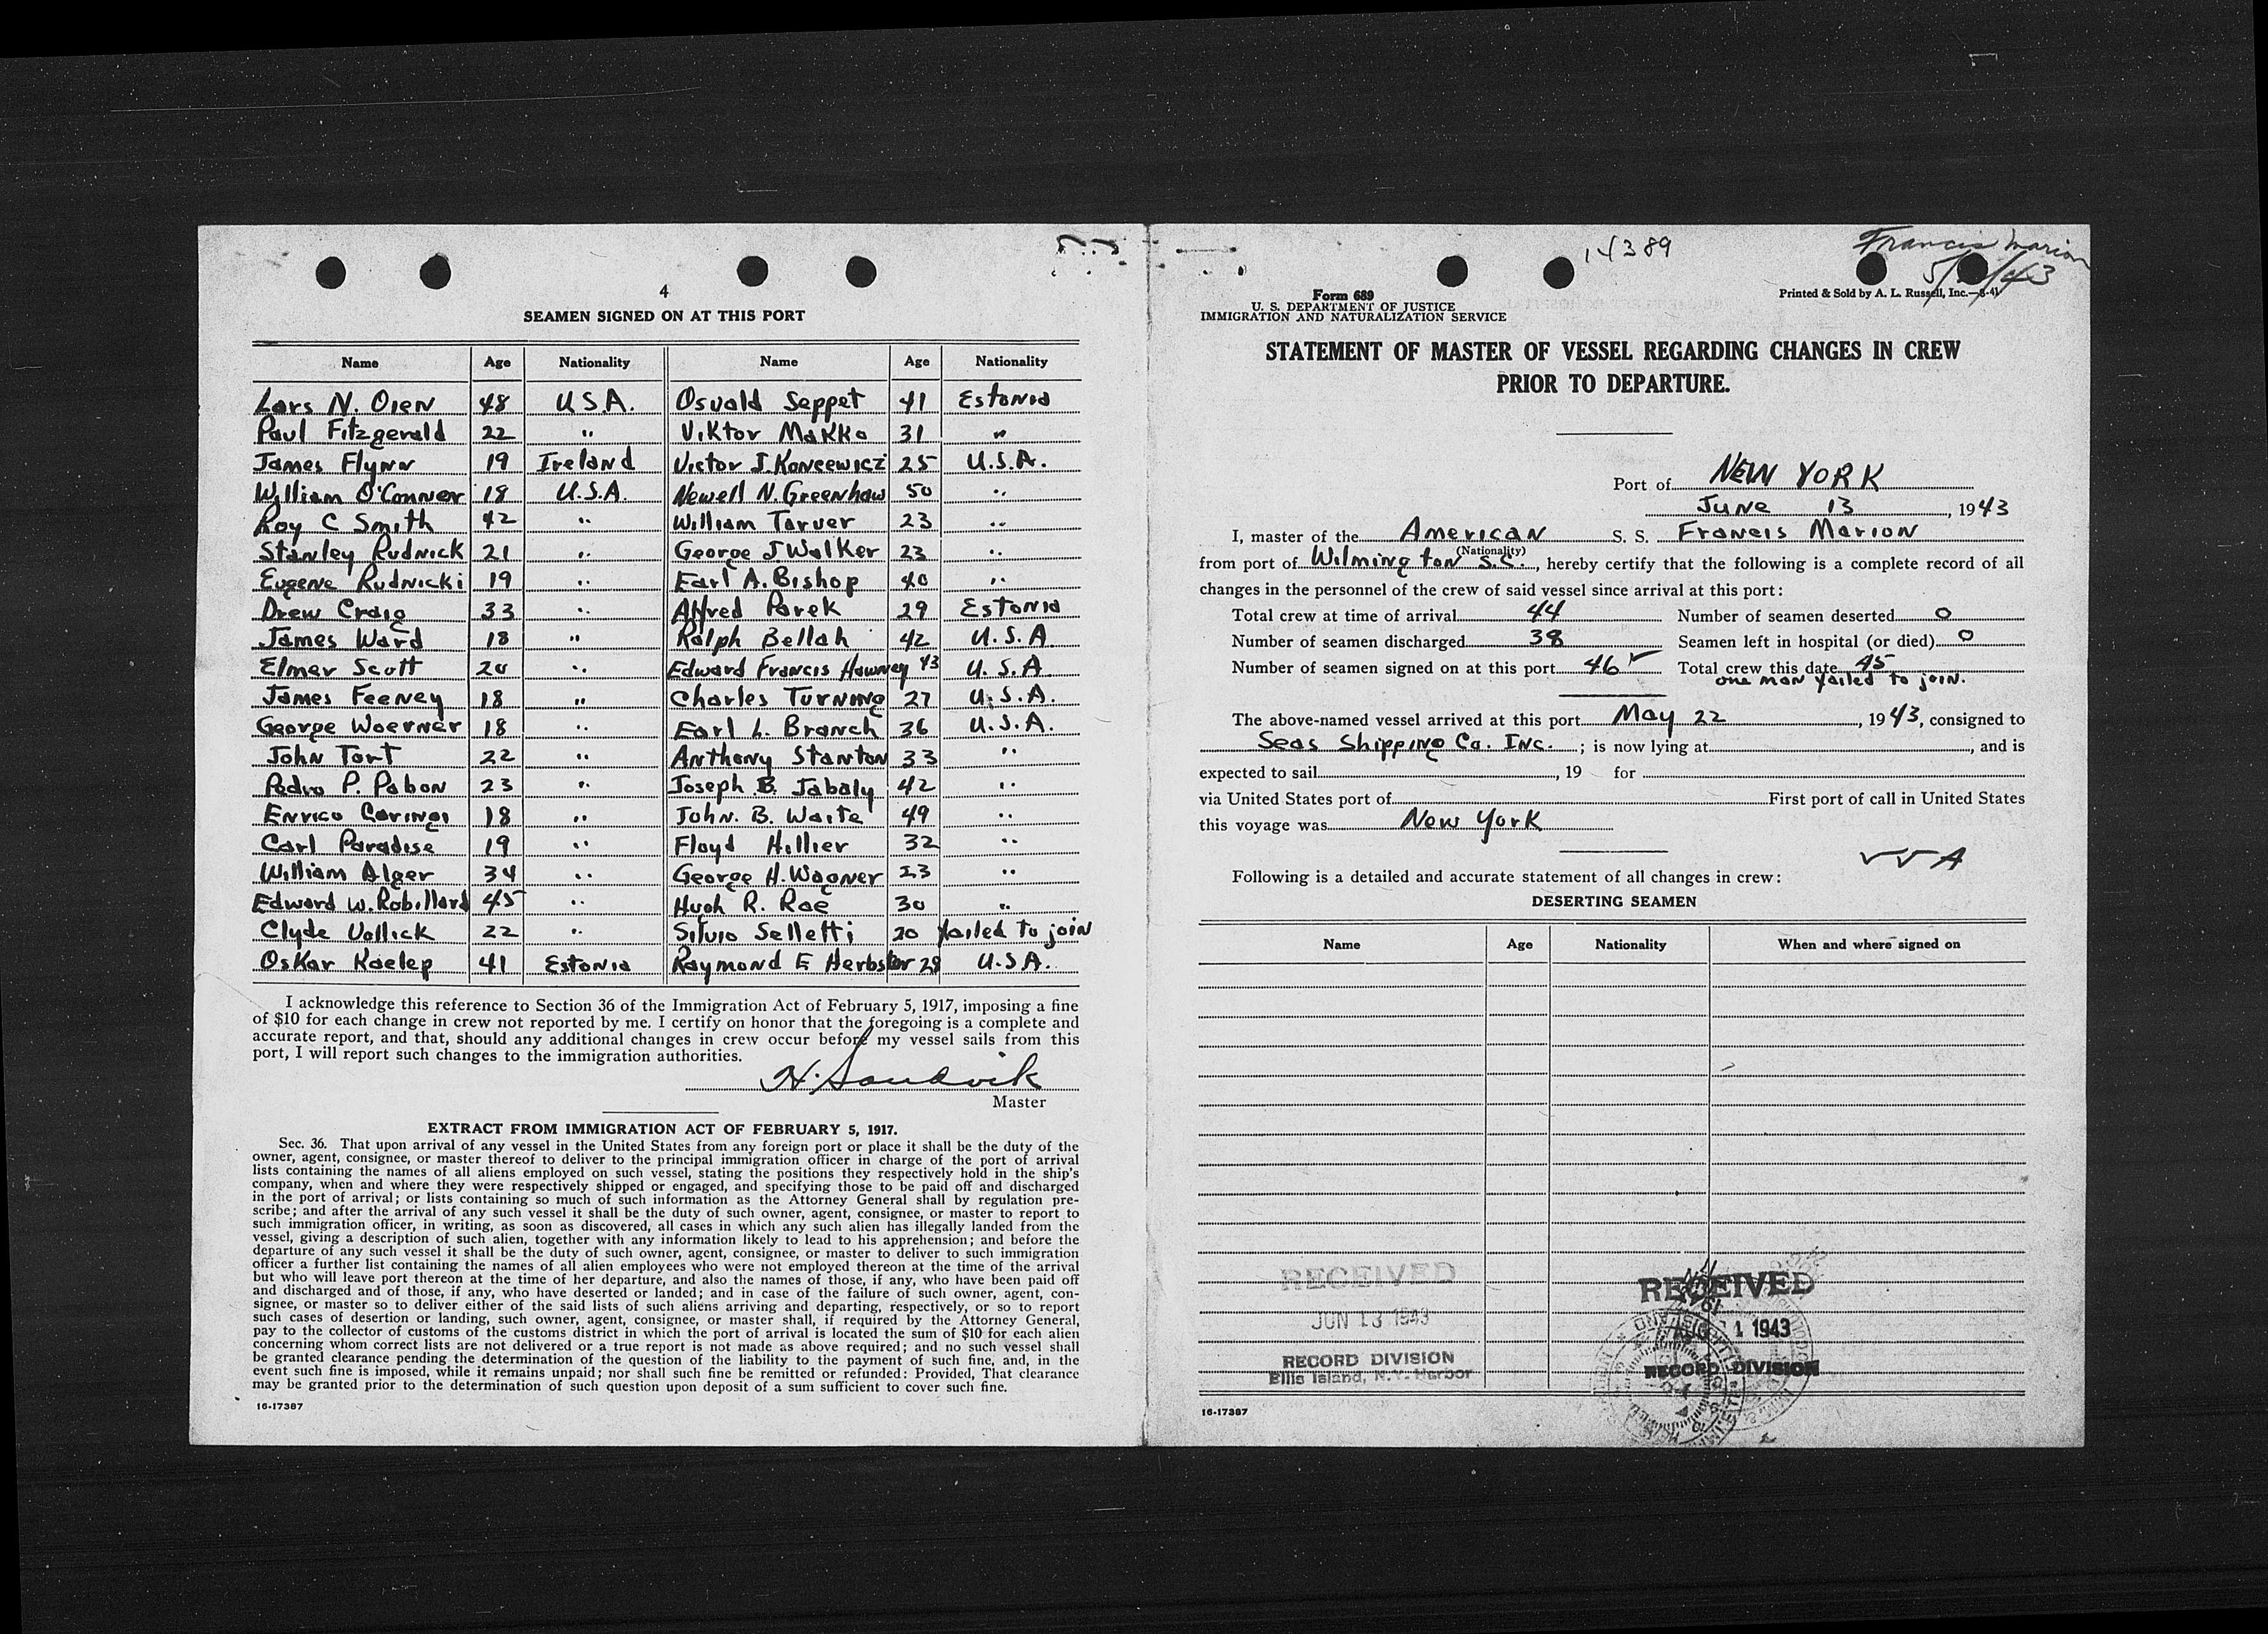 4
SEAMEN SIGNED ON AT THIS PORT
Name Age Nationality Name Age Nationality
Lars N. Oien 48 U.S.A. Osvald Seppet 41 Estonia
Paul Fitzgerald 22 " Viktor Makko 31 "
James Flynn 19 Ireland Victor J. Koncewicz 25 U.S.A.
William O'Conner 18 U.S.A. Newell N. Greenhaw 50 "
Roy C Smith 42 " William Tarver 23 "
Stanley Rudnick 21 " George J Walker 23 "
Eugene Rudnicki 19 " Earl A. Bishop 40 "
Drew Craig 33 " Alfred Parek 29 Estonia
James Ward 18 " Ralph Bellah 42 U.S.A
Elmer Scott 20 " Edward Francis 43 U.S.A
James Feeney 18 " Charles Turning 27 U.S.A.
George Woerner 18 " Earl L. Branch 36 U.S.A.
John Tort 22 " Anthony Stanton 33 "
Pedro P. Pabon 23 " Joseph B. Jabaly 42 "
Enrico Caringi 18 " John. B. Waite 49 "
Carl Paradise 19 " Floyd Hillier 32 "
William Alger 34 " George H. Wagner 23 "
Edward W. Robillard 45 " Hugh R. Rae 30 "
Clyde Vollick 22 " Silvio Selletti 20 failed to join
Oskar Kaelep 41 Estonia Raymond E Herbster 28 U.S.A.
I acknowledge this reference to Section 36 of the Immigration Act of February 5, 1917, imposing a fine
of $10 for each change in crew not reported by me. I certify on honor that the foregoing is a complete and
accurate report, and that, should any additional changes in crew occur before my vessel sails from this
port, I will report such changes to the immigration authorities.
H. Sandvik
Master
EXTRACT FROM IMMIGRATION ACT OF FEBRUARY 5, 1917.
Sec. 36. That upon arrival of any vessel in the United States from any foreign port or place it shall be the duty of the
owner, agent, consignee, or master thereof to deliver to the principal immigration officer in charge of the port of arrival
lists containing the names of all aliens employed on such vessel, stating the positions they respectively hold in the ship's
company, when and where they were respectively shipped or engaged, and specifying those to be paid off and discharged
in the port of arrival; or lists containing so much of such information as the Attorney General shall by regulation pre-
scribe; and after the arrival of any such vessel it shall be the duty of such owner, agent, consignee, or master to report to
such immigration officer, in writing, as soon as discovered, all cases in which any such alien has illegally landed from the
vessel, giving a description of such alien, together with any information likely to lead to his apprehension; and before the
departure of any such vessel it shall be the duty of such owner, agent, consignee, or master to deliver to such immigration
officer a further list containing the names of all alien employees who were not employed thereon at the time of the arrival
but who will leave port thereon at the time of her departure, and also the names of those, if any, who have been paid off
and discharged and of those, if any, who have deserted or landed; and in case of the failure of such owner, agent, con-
signee, or master so to deliver either of the said lists of such aliens arriving and departing, respectively, or so to report
such cases of desertion or landing, such owner, agent, consignee, or master shall, if required by the Attorney General,
pay to the collector of customs of the customs district in which the port of arrival is located the sum of $10 for each alien
concerning whom correct lists are not delivered or a true report is not made as above required; and no such vessel shall
be granted clearance pending the determination of the question of the liability to the payment of such fine, and, in the
event such fine is imposed, while it remains unpaid; nor shall such fine be remitted or refunded: Provided, That clearance
may be granted prior to the determination of such question upon deposit of a sum sufficient to cover such fine.
16-17387
14389
Francis Marion
Form 689
U. S. DEPARTMENT OF JUSTICE
IMMIGRATION AND NATURALIZATION SERVICE
Printed & Sold by A. L. Russell, Inc.
STATEMENT OF MASTER OF VESSEL REGARDING CHANGES IN CREW
PRIOR TO DEPARTURE.
Port of NEW YORK
June 13, 1943
I, master of the American S. S. Francis Marion
(Nationality)
from port of Wilmington S.C., hereby certify that the following is a complete record of all
changes in the personnel of the crew of said vessel since arrival at this port:
Total crew at time of arrival 44 Number of seamen deserted 0
Number of seamen discharged 38 Seamen left in hospital (or died) 0
Number of seamen signed on at this port 46 Total crew this date 45
one man failed to join.
The above-named vessel arrived at this port May 22, 1943, consigned to
Seas Shipping Co. Inc.; is now lying at, and is
expected to sail, 19 for
via United States port of First port of call in United States
this voyage was New York
Following is a detailed and accurate statement of all changes in crew:
DESERTING SEAMEN
Name Age Nationality When and where signed on
RECEIVED
JUN 13 1943
RECORD DIVISION
Ellis Island, N.Y. Harbor
RECEIVED
1943
RECORD DIVISION
16-17387